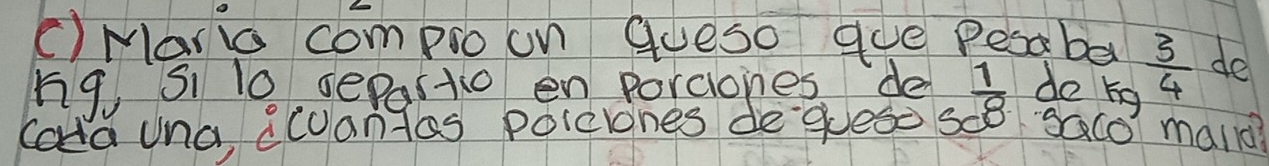 c) Maria compro un queso que pesaba 3/4 de
kg, si lo repartio en porciones de 1/8 de kg
cada una, ¿cuantas porciones de queso saco maria?